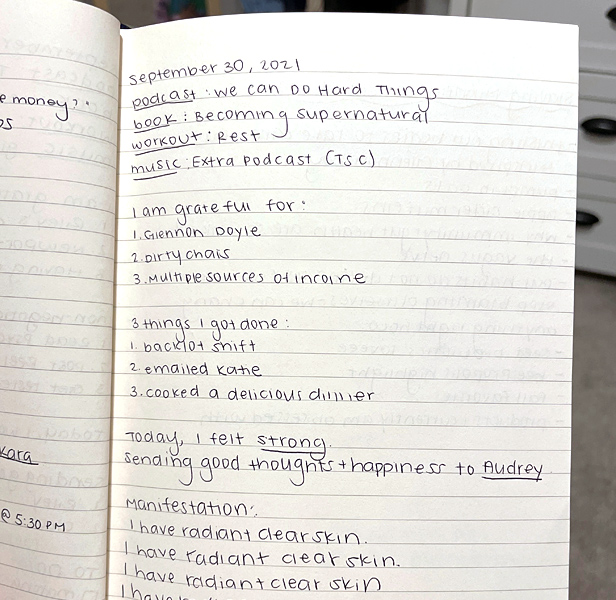 e money?
os
Kara
@ 5:30 PM
September 30, 2021
podcast: We Can Do Hard Things
book: Becoming Supernatural
workout: Rest
music: Extra Podcast (TSC)
I am grateful for:
1. Glennon Doyle
2. Dirty chais
3. Multiple sources of income
3 things I got done:
1. backlot shift
2. emailed Katie
3. cooked a delicious dinner
Today, I felt strong.
Sending good thoughts + happiness to Audrey
Manifestation:
I have radiant clear skin.
I have radiant clear skin.
I have radiant clear skin
I have